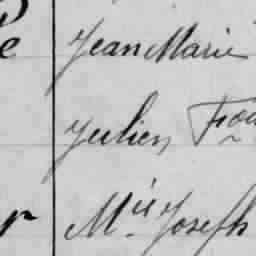 Jean Marie
Julien
M.ie Joseph